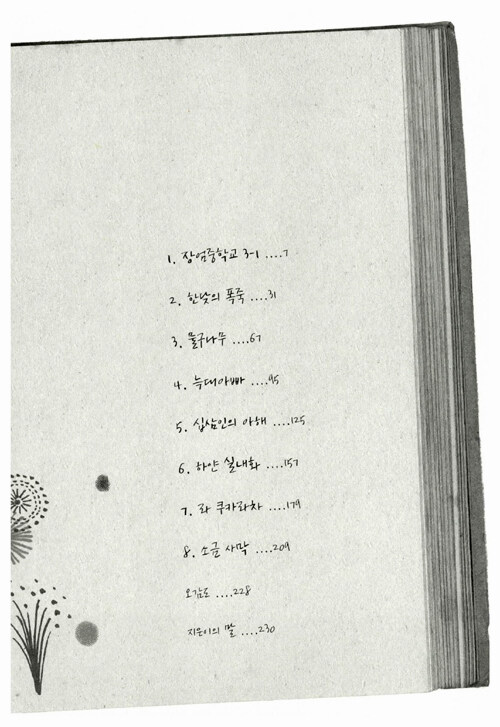 1. 장엄중학교 3-1 ....7
2. 한낮의 폭죽 ....31
3. 물구나무 ....67
4. 늑대아빠 ....95
5. 십삼인의 아해 ....125
6. 하얀 실내화 ....157
7. 라 쿠카라차 ....179
8. 소금 사막 ....209
오감도 ....228
지은이의 말 ....230